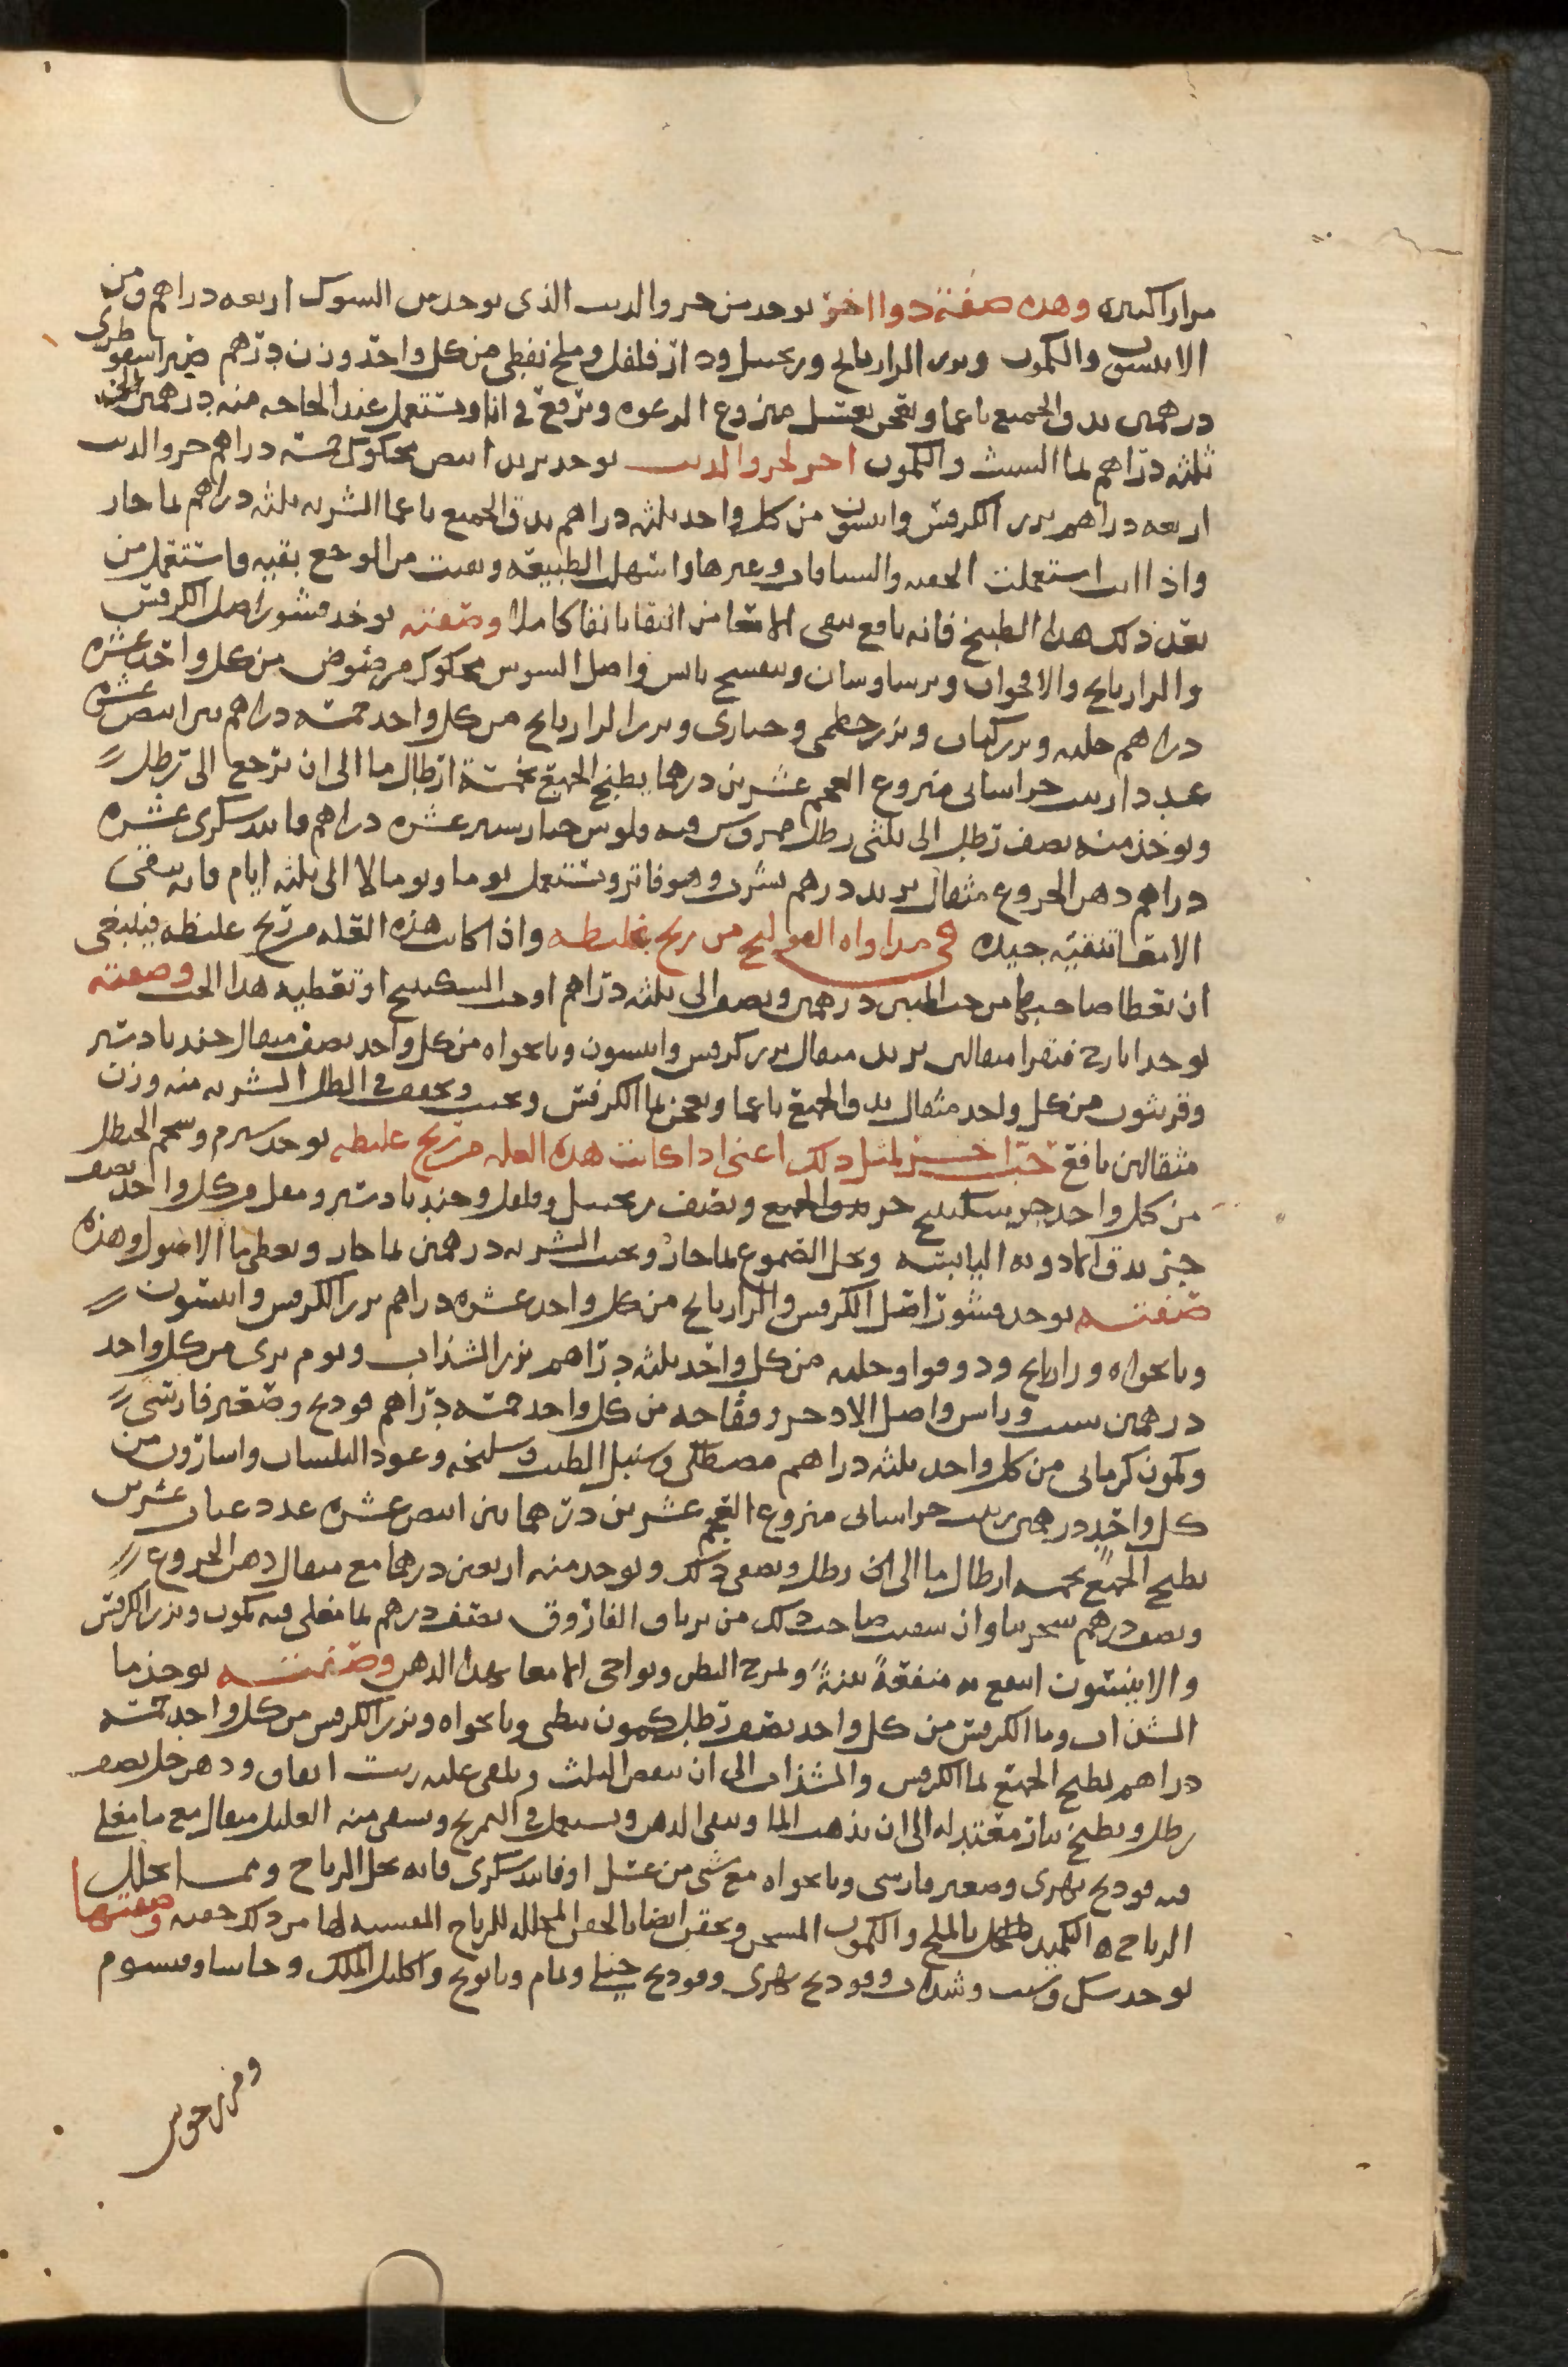 مرارا كثيره وهذه صفة دوا اخر يوخذ من خرو الديب الذي يوجد من الشوك اربعه دراهم ومن
الانيسون والكمون وبزر الرازيانج وزنجبيل ودار فلفل وملح نفطي من كل واحد وزن درهم صبر اسقوطري
درهمين يدق الجميع ناعما ويعجن بعسل منزوع الرغوه ويرفع في انا ويستعمل عند الحاجه منه درهمين الى
ثلثه دراهم بما الشبث والكمون اخر لخرو الديب يوخذ تربد ابيض محكوك خمسه دراهم خرو الديب
اربعه دراهم بزر الكرفس وانيسون من كل واحد ثلثه دراهم يدق الجميع ناعما الشربه ثلثه دراهم بما حار
واذا انت استعملت الحقنه والشيافات وغيرها واسهل الطبيعه وبقيت من الوجع بقيه فاستعمل من
بعد ذلك هذا الطبيخ فانه نافع ينقي الامعا من البقايا نقا كاملا وصفته يوخذ قشور اصل الكرفس
والرازيانج والاقحوان وبرسياوشان وبنفسج يابس واصل السوس محكوك مرضوض من كل واحد عشره
دراهم حلبه وبزر كتان وبزر خطمي وخبازى وبزر الرازيانج من كل واحد خمسه دراهم تين ابيض عشره
عدد زبيب خراساني منزوع العجم عشرين درهما يطبخ الجميع بخمسة ارطال ما الى ان يرجع الى رطل
ويوخذ منه نصف رطل الى ثلثي رطل ممروس فيه فلوس خيار شنبر عشره دراهم فانيد سكري عشره
دراهم دهن الخروع مثقال تربد درهم يشرب وهو فاتر ويستعمل يوما ويوما لا الى ثلثه ايام فانه ينقي
الامعا تنقيه جيده في مداواه القولنج من ريح غليظه واذا كانت هذه العله من ريح غليظه فينبغي
ان يعطا صاحبها من حب المنتن درهمين ونصف الى ثلثه دراهم او حب السكبينج او تعطيه هذا الحب وصفته
يوخذ ايارج فيقرا مثقالين تربد مثقال بزر كرفس وانيسون ونانخواه من كل واحد نصف مثقال جندبادستر
وفربيون من كل واحد مثقال يدق الجميع ناعما ويعجن بما الكرفس ويحبب ويجفف في الظل الشربه منه وزن
مثقالين نافع حب اخر لمثل ذلك اعني اذا كانت هذه العله من ريح غليظه يوخذ شبرم وشحم الحنظل
من كل واحد جزو سكبينج جزو ونصف زنجبيل وفلفل وجندبادستر ومقل من كل واحد نصف
جز يدق الادويه اليابسه ويحل الصموغ بما حار ويحبب الشربه درهمين بما حار ويعطى ما الاصول وهذه
صفته يوخذ قشور اصل الكرفس والرازيانج من كل واحد عشره دراهم بزر الكرفس وانيسون
ونانخواه ورازيانج ودوقوا وحلبه من كل واحد ثلثه دراهم بزر الشذاب وثوم بري من كل واحد
درهمين شبت وراس واصل الاذخر وفقاحه من كل واحد خمسه دراهم فودنج وصعتر فارسي
وكمون كرماني من كل واحد ثلثه دراهم مصطكي وسنبل الطيب وسليخه وعود البلسان واسارون من
كل واحد درهمين زبيب خراساني منزوع العجم عشرين درهما تين ابيض عشره عدد عناب عشرين
يطبخ الجميع بخمسه ارطال ما الى ان رطل ويصفى ذلك ويوخذ منه اربعين درهما مع مثقال دهن الخروع
ونصف درهم سجزنيا وان سقيت صاحب ذلك من ترياق الفاروق نصف درهم بما مغلي فيه كمون وبزر الكرفس
والانيسون انتفع به منفعة بينة ويمرخ البطن ونواحي الامعا بهذا الدهن وصفته يوخذ ما
الشذاب وما الكرفس من كل واحد نصف رطل كمون نبطي ونانخواه وبزر الكرفس من كل واحد خمسه
دراهم يطبخ الجميع بما الكرفس والشذاب الى ان ينقص الثلث ويلقى عليه زيت انفاق ودهن خل نصف
رطل ويطبخ بنار معتدله الى ان يذهب الما ويبقى الدهن ويستعمل في التمريخ ويسقى منه العليل مثقال مع ما مغلي
فيه فودنج نهري وصعتر فارسي ونانخواه مع شي من عسل او فانيد سكري فانه يحل الرياح ومما يحلل
الرياح التكميد بالملح والكمون المسخن ويحقن ايضا بالحقن المحلله للرياح المفشيه لها من ذلك حقنه وصفتها
يوخذ شبت وشذاب وفودنج نهري وفودنج جبلي ونمام وبابونج واكليل الملك وحاشا وقيسوم
ومرزنجوش